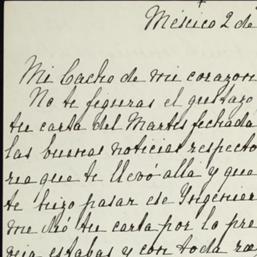 México 2 de
Mi Cacho de mi corazon
No te figuras el gustazo
tu carta del Martes fechada
las buenas noticias respecto
rea que te llevó allá y que
te hizo pasar ese Ingenier
me dió tu carta por lo pre
estabas y con toda ra